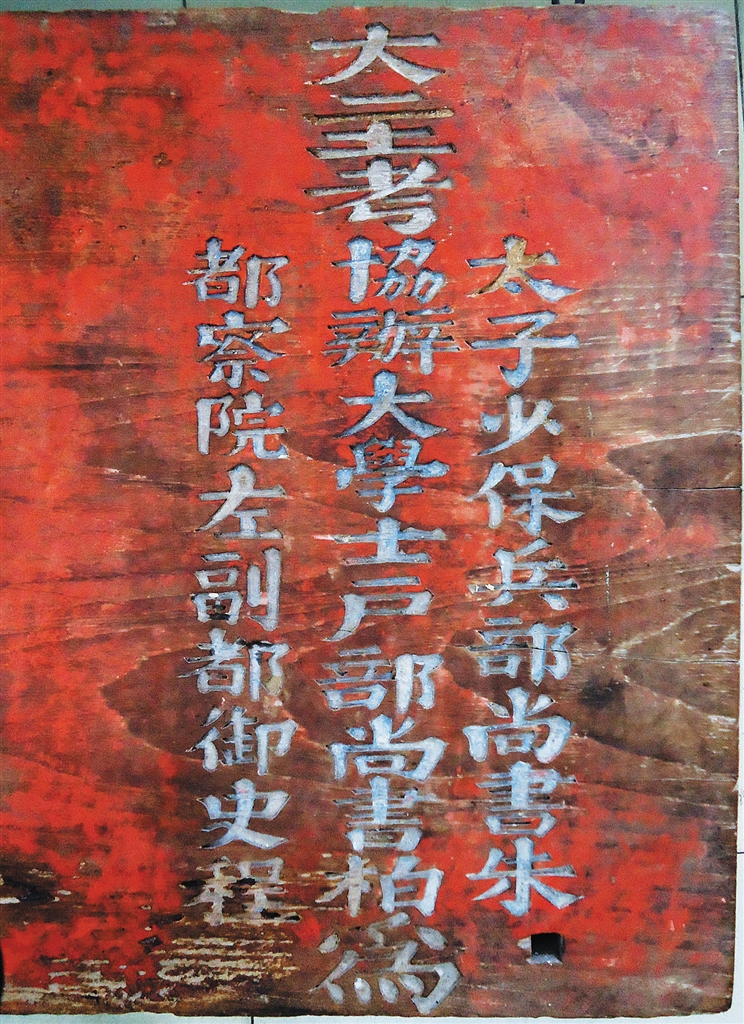 太子少保兵部尚書朱
大主考協辦大學士戶部尚書柏為
都察院左副都御史程